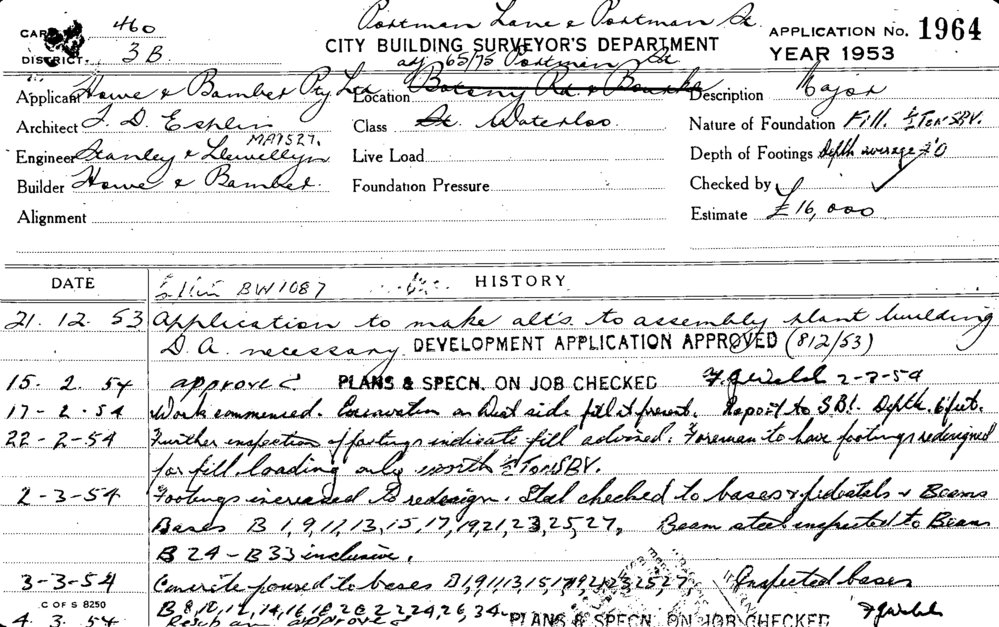 Portman Lane & Portman St.
CARD 460
CITY BUILDING SURVEYOR'S DEPARTMENT
APPLICATION No. 1964
DISTRICT. 3B
adj 65/75 Portman St
YEAR 1953
Applicant Howe & Bamber Pty Ltd Location Botany Rd & Bourke Description Major
Architect J. D. Esplin Class St. Waterloo. Nature of Foundation Fill. ½ Ton SBV.
MA9527.
Engineer Stanley & Llewellyn Live Load Depth of Footings Depth average 2'0
Builder Howe & Bamber. Foundation Pressure Checked by
Alignment Estimate £16,000
DATE BW1087 HISTORY
21. 12. 53 Application to make alts. to assembly plant building
D. A. necessary. DEVELOPMENT APPLICATION APPROVED (812/53)
15. 2. 54 approved PLANS & SPECN. ON JOB CHECKED 2-3-54
17-2-54 Work commenced. Excavation on West side fill at present. Report to SBI. Depth. 6 feet.
22-2-54 Further inspection of footings indicate fill advised. Foreman to have footings redesigned
for fill loading only worth ½ Ton SBV.
2-3-54 Footings increased & redesign. Steel checked to bases & pedestals & Beams
Bases B 1, 9, 11, 13, 15, 17, 19, 21, 23, 25, 27, Beam steel inspected to Beams
B 24 - B 33 inclusive.
3-3-54 Concrete poured to bases B 1, 9, 11, 13, 15, 17, 19, 21, 23, 25, 27, Inspected bases
C OF S 8250 B 8, 10, 12, 14, 16, 18, 20, 22, 24, 26, 34.
4. 3. 54 approved PLANS & SPECN. ON JOB CHECKED